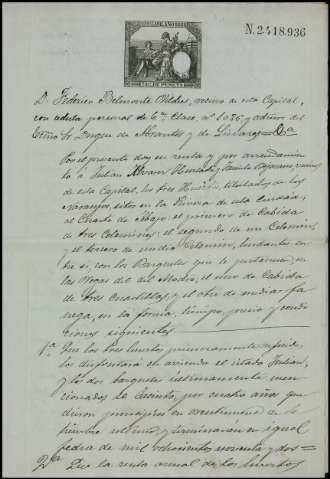 N. 2.418.936
D. Federico Belmonte Vilches, vecino de esta Capital,
con cédula personal de 6ª Clase, nº 1035 y admor del
Exmo Sr Duque de Abrantes y de Linares = Da
Por el presente doy en renta y por arrendamien
to a Julian Hurtado y Jacinto vecinos
de esta Capital, los tres Huertos, titulados de los
Naranjos, sitos en la Rivera de esta Ciudad,
al Charco de Abajo, el primero de Cabida
de tres Celemines, el segundo de un Celemin,
y el tercero de medio Celemin, lindantes en
tre si, con los Banquetes que le pertenecen, en
las Vegas del del Medio, el uno de Cabida
de tres Cuartillas, y el otro de media fa
nega, en la forma, tiempo, precio y condi
ciones siguientes
1ª Que los tres huertos primeramente referidos,
los disfrutará el arriendo el citado Julian,
y los dos banquetes ultimamente men
cionados lo Jacinto, por cuatro años que
dieron principio en
timbre ultimo, y terminarán en igual
fecha de mil ochocientos noventa y dos=
2ª Que la renta anual de los huertos